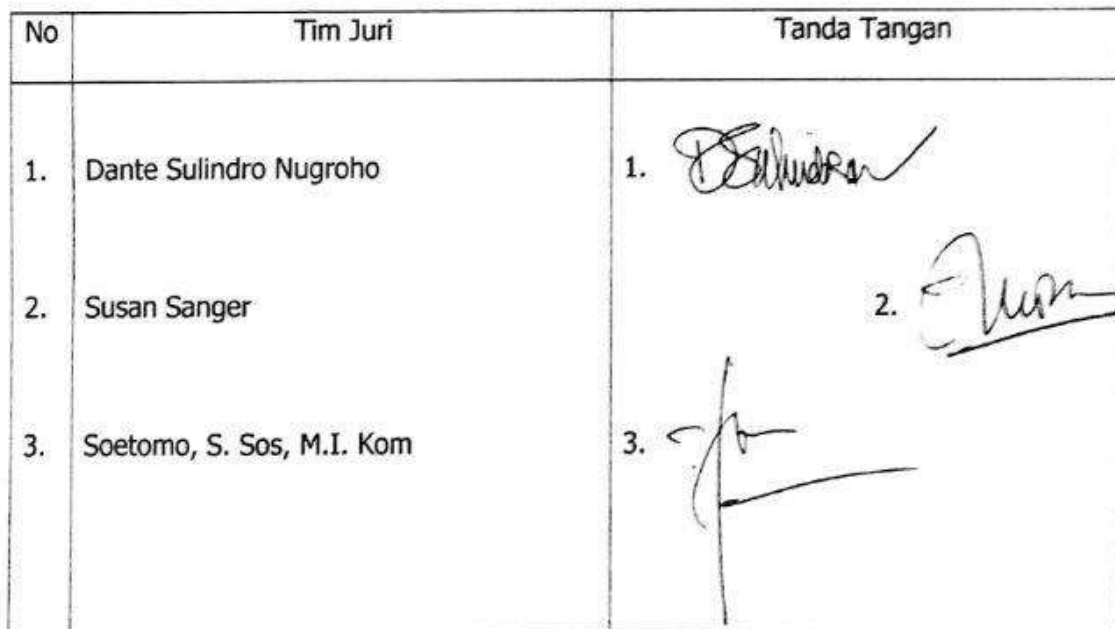 No Tim Juri Tanda Tangan
1. Dante Sulindro Nugroho 1.
2. Susan Sanger 2.
3. Soetomo, S. Sos, M.I. Kom 3.